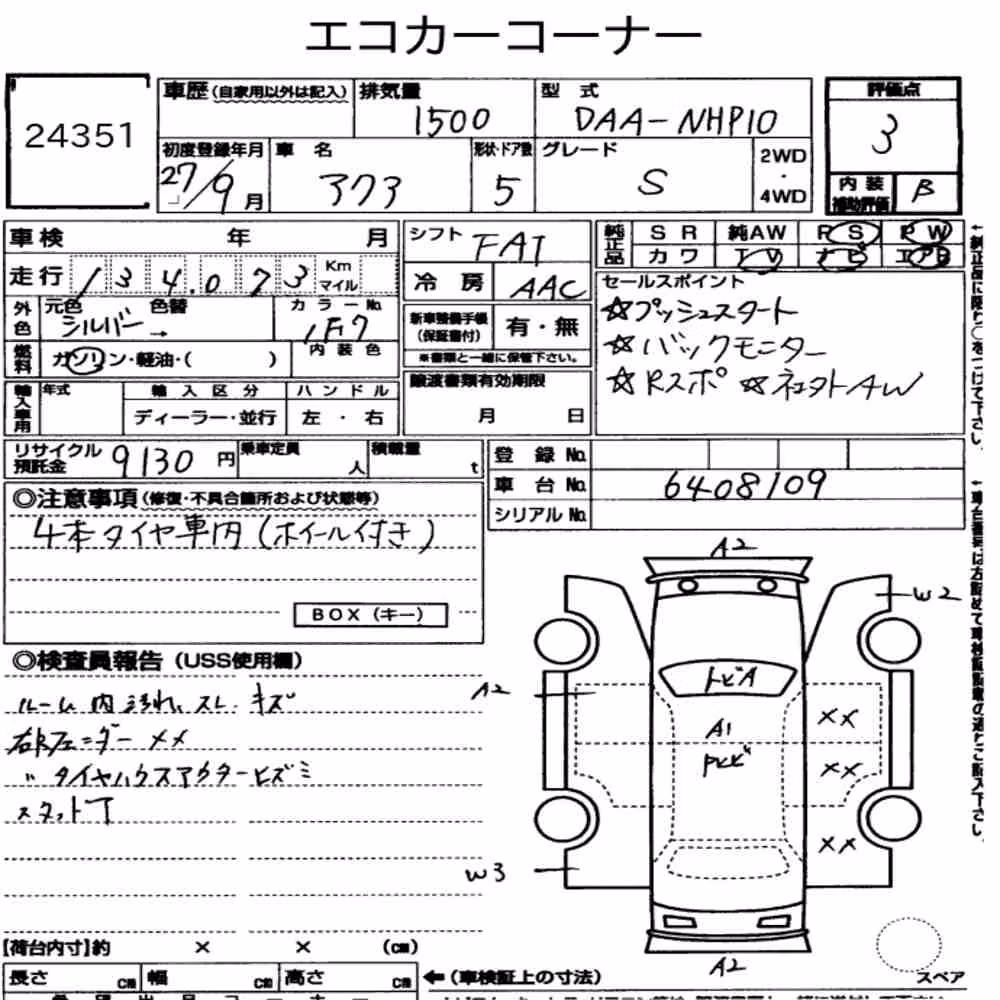 エコカーコーナー
24351
車歴(自家用以外は記入)
排気量
1500
型式
DAA-NHP10
評価点
3
初度登録年月
27/9月
車名
アクア
形状・ドア数
5
グレード
S
2WD
・
4WD
内装
補助評価
B
車検 年 月
シフト
FAT
純正品
SR 純AW PS PW
カワ TV ナビ エアB
走行 134,073 Km マイル
冷房
AAC
セールスポイント
☆プッシュスタート
☆バックモニター
☆Rスポ ☆ネオクトAW
外色
元色 色替
シルバー→
カラーNo.
1F7
新車整備手帳
(保証書付)
有・無
※書類と一緒に保管下さい。
燃料
ガソリン・軽油・( )
内装色
輸入車用
年式
輸入区分
ハンドル
ディーラー・並行
左・右
譲渡書類有効期限
月 日
リサイクル
預託金
9130円
乗車定員
人
積載量
t
登録No.
車台No.
6408109
シリアルNo.
◎注意事項(修復・不具合箇所および状態等)
4本タイヤ車内(ホイール付き)
BOX(キー)
◎検査員報告(USS使用欄)
ルーム内汚れ、スレ、キズ
右Rフェンダー××
〃タイヤハウスアウターヒズミ
スタッド下
A2
W2
トビA
A2
A1
××
××
××
W3
A2
スペア
【荷台内寸】約 × × (cm)
長さ cm 幅 cm 高さ cm
←(車検証上の寸法)